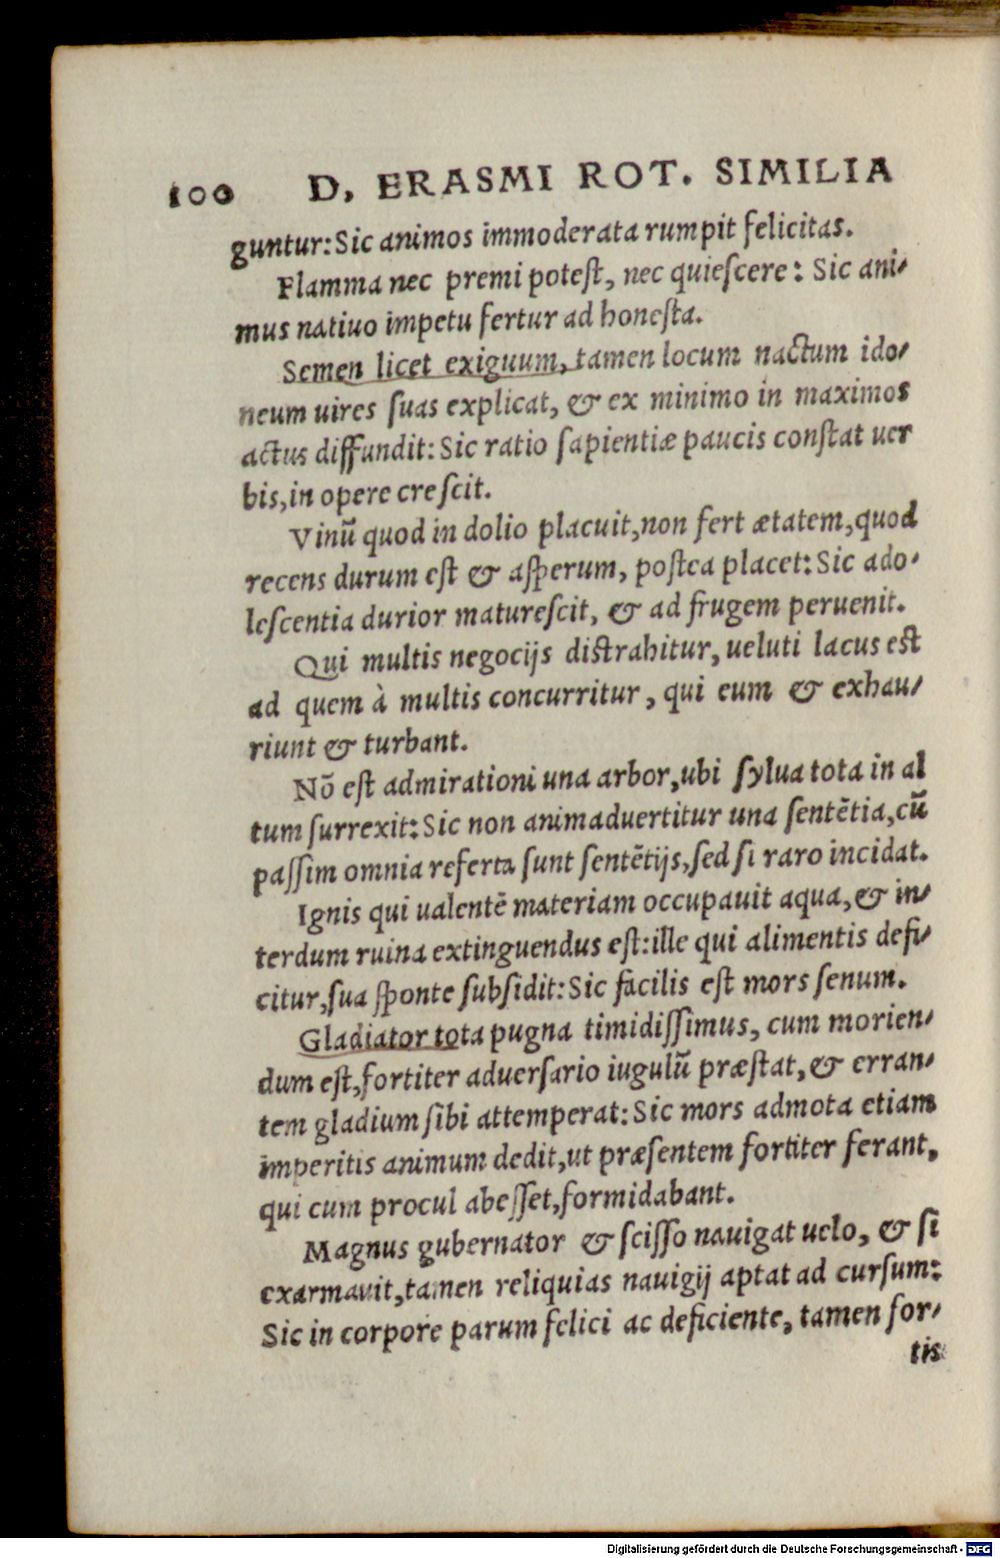 100 D. ERASMI ROT. SIMILIA
guntur: Sic animos immoderata rumpit felicitas.
Flamma nec premi potest, nec quiescere: Sic ani-
mus natiuo impetu fertur ad honesta.
Semen licet exiguum, tamen locum nactum ido-
neum uires suas explicat, & ex minimo in maximos
actus diffundit: Sic ratio sapientiæ paucis constat uer
bis, in opere crescit.
Vinū quod in dolio placuit, non fert ætatem, quod
recens durum est & asperum, postea placet: Sic ado-
lescentia durior maturescit, & ad frugem peruenit.
Qui multis negocijs distrahitur, ueluti lacus est
ad quem à multis concurritur, qui eum & exhau-
riunt & turbant.
Nō est admirationi una arbor, ubi sylua tota in al
tum surrexit: Sic non animaduertitur una sentētia, cū
passim omnia referta sunt sentētijs, sed si raro incidat.
Ignis qui ualentē materiam occupauit aqua, & in-
terdum ruina extinguendus est: ille qui alimentis defi-
citur, sua sponte subsidit: Sic facilis est mors senum.
Gladiator tota pugna timidissimus, cum morien-
dum est, fortiter aduersario iugulū præstat, & erran-
tem gladium sibi attemperat: Sic mors admota etiam
imperitis animum dedit, ut præsentem fortiter ferant,
qui cum procul abesset, formidabant.
Magnus gubernator & scisso nauigat uelo, & si
exarmauit, tamen reliquias nauigij aptat ad cursum:
Sic in corpore parum felici ac deficiente, tamen for-
tis
Digitalisierung gefördert durch die Deutsche Forschungsgemeinschaft - DFG